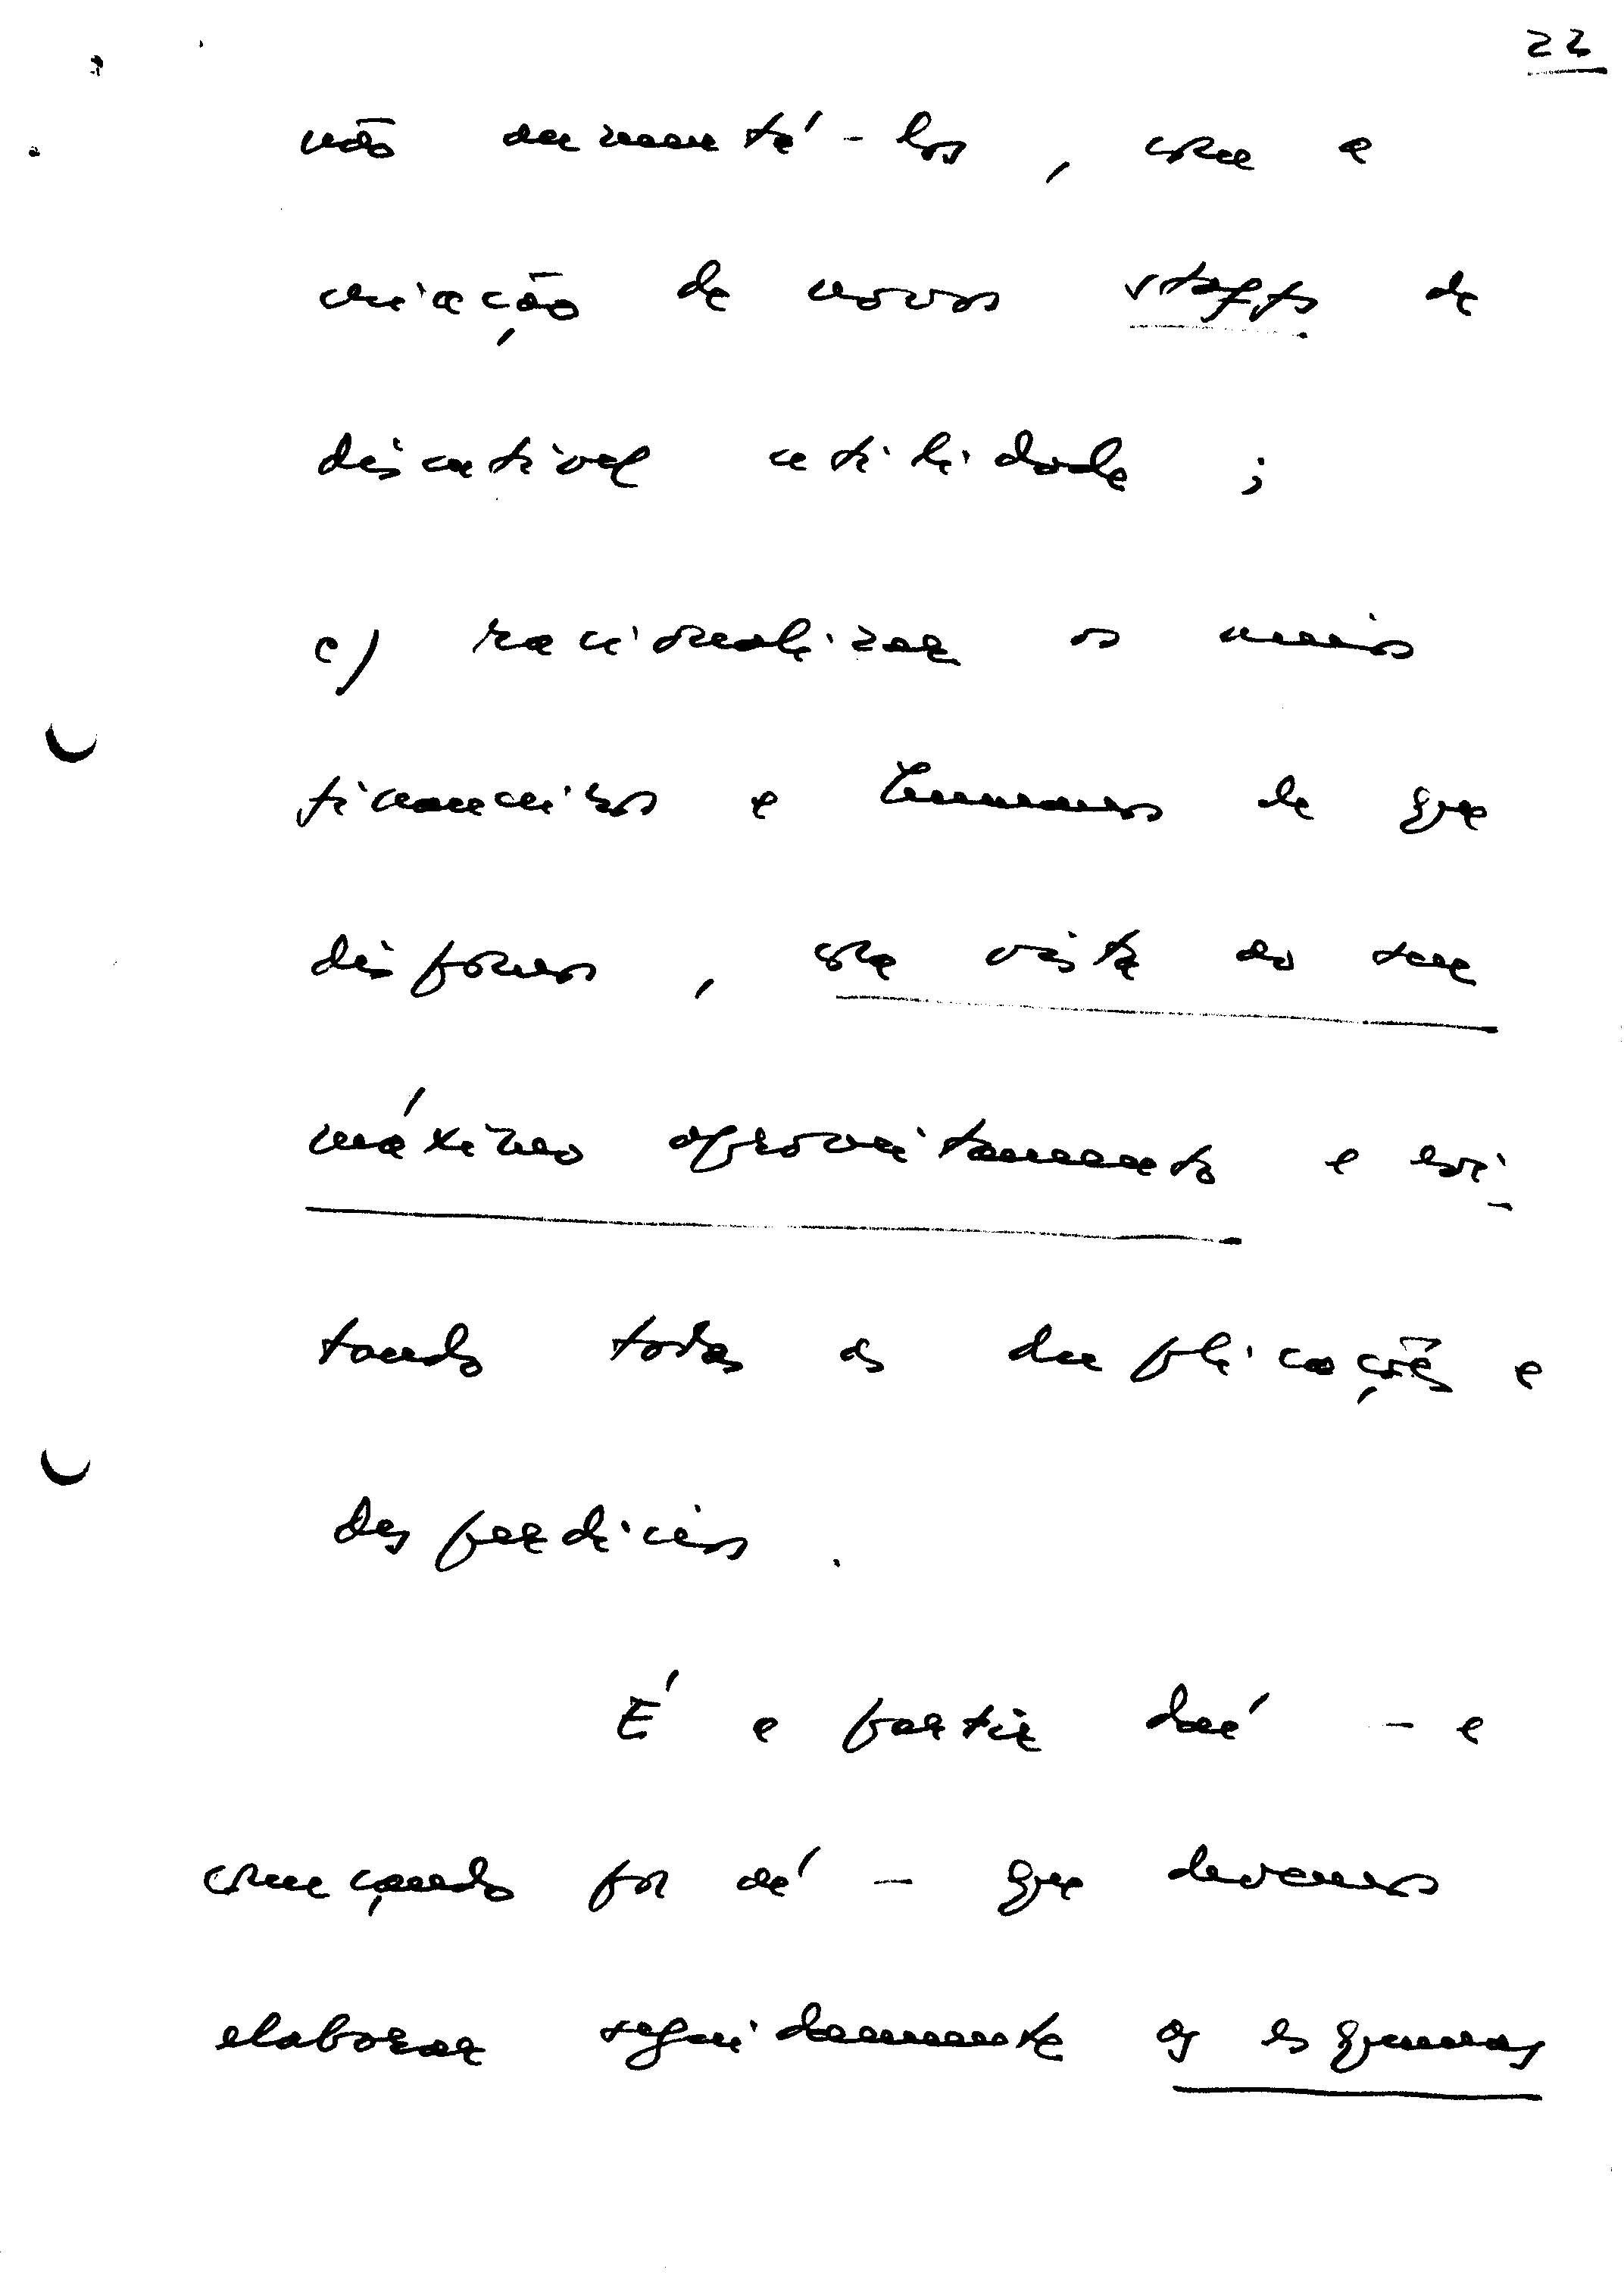 22
não aumentá-los, com a
criação de novos staffs de
discutível utilidade;
c) racionalizar os meios
financeiros e humanos de que
dispomos, com vista ao seu
máximo aproveitamento e evi-
tando todas as duplicações e
desperdícios.
É a partir daí - e
começando por aí - que devemos
elaborar seguidamente os esquemas